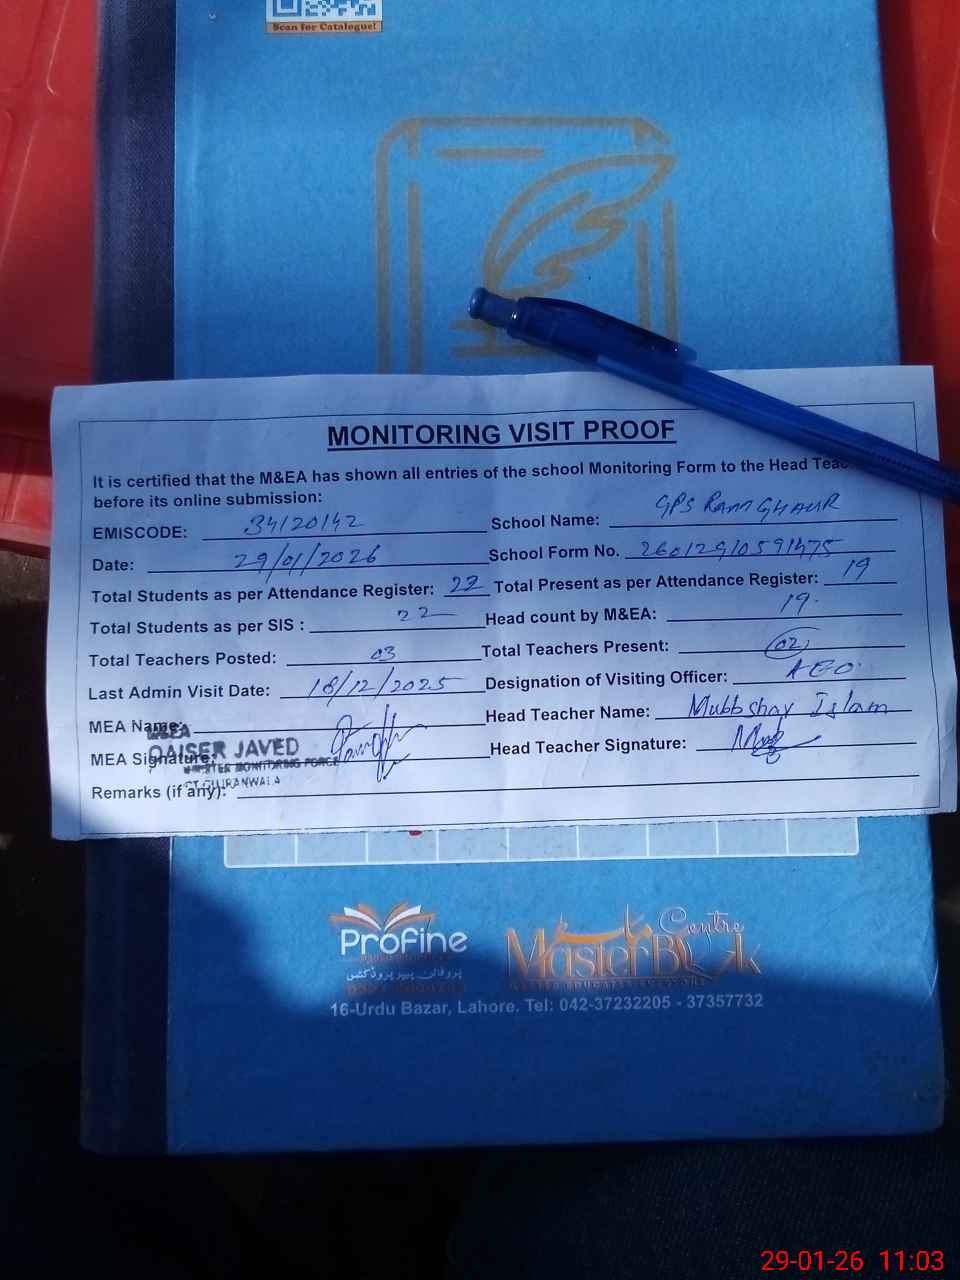 Scan for Catalogue!
MONITORING VISIT PROOF
It is certified that the M&EA has shown all entries of the school Monitoring Form to the Head Teac
before its online submission:
EMISCODE: 34120142 School Name: GPS RAM GHAUR
Date: 29/01/2026 School Form No. 26012910591475
Total Students as per Attendance Register: 22 Total Present as per Attendance Register: 19
Total Students as per SIS : 22 Head count by M&EA: 19
Total Teachers Posted: 03 Total Teachers Present: 02
Last Admin Visit Date: 18/12/2025 Designation of Visiting Officer: AEO
MEA Name: Head Teacher Name: Mubbshar Islam
MEA
QAISER JAVED
MEA Signature: Head Teacher Signature:
MONITORING FORCE
GUJRANWALA
Remarks (if any):
Profine
پروفائن پیپر پروڈکٹس
Master Book Centre
16-Urdu Bazar, Lahore. Tel: 042-37232205 - 37357732
29-01-26 11:03